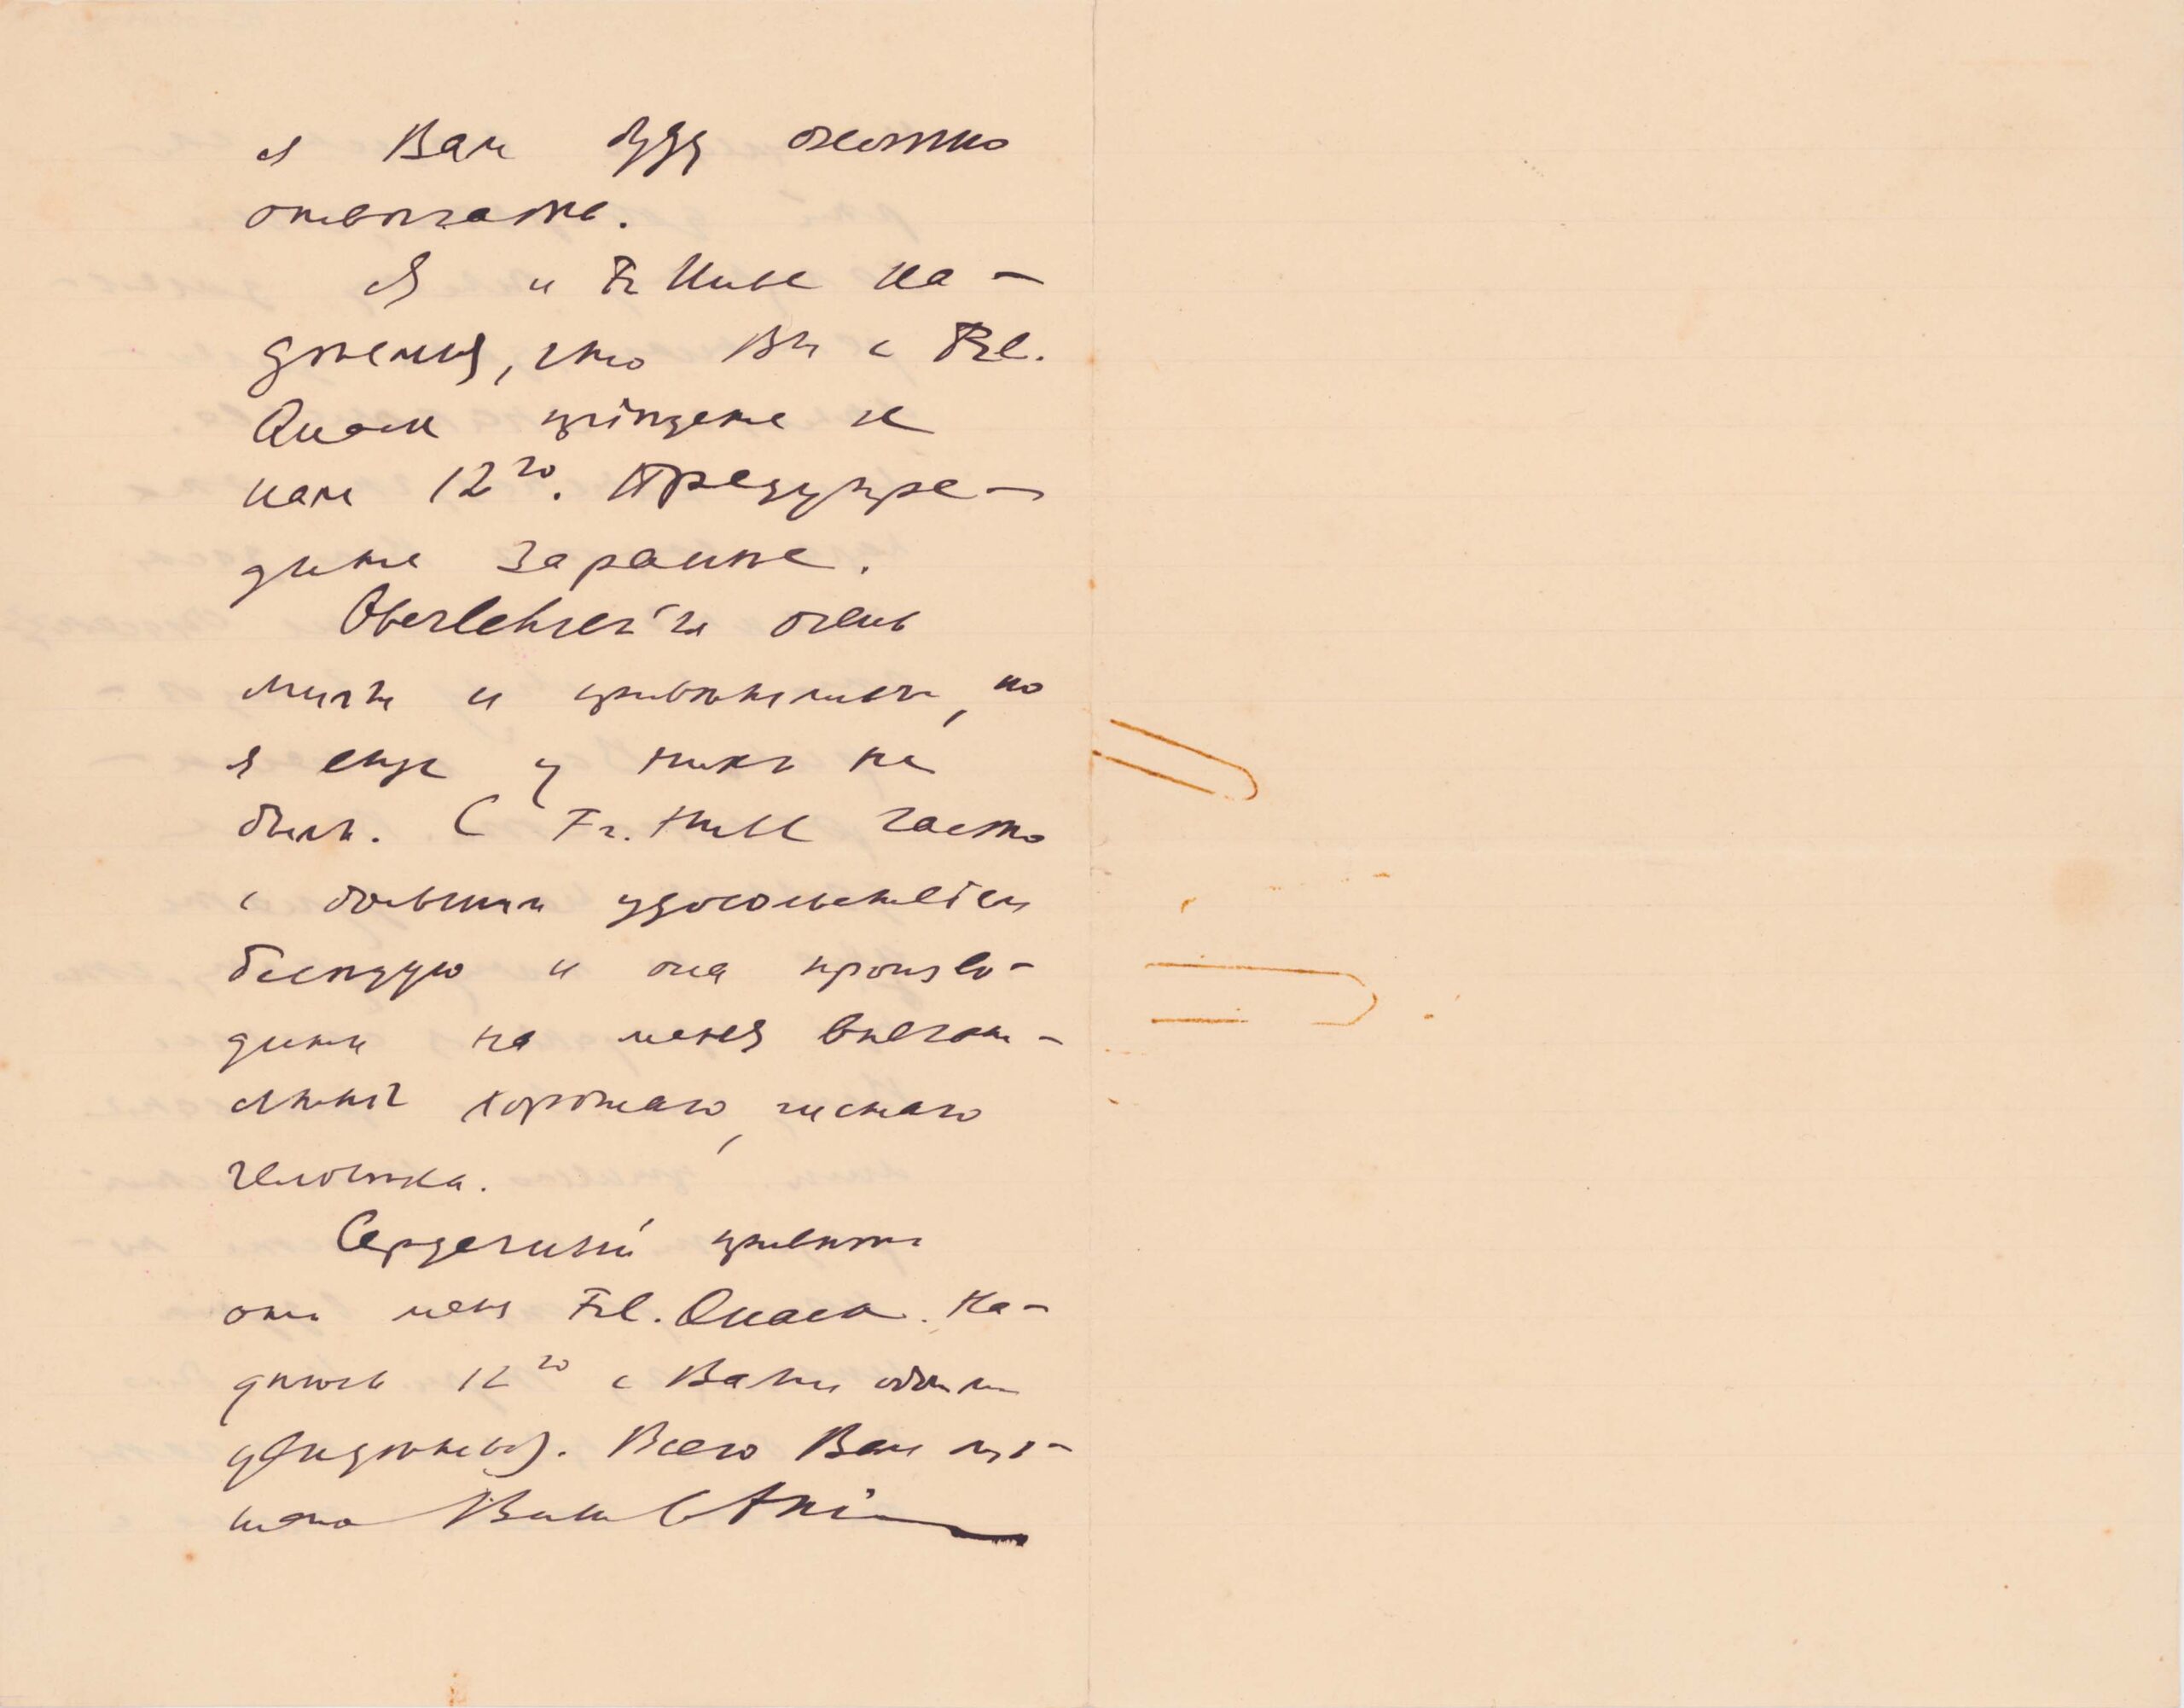 я Вам буду охотно
отвѣчать.
Я и Fr. на-
дѣемся, что Вы с Frl.
пріѣдете к
нам 12го. Предупре-
дите заранѣе.
Oberlehrer'ы очень
милы и привѣтливы, но
я еще у них не
былъ. С Fr. часто
с большим удовольствіем
бесѣдую и она произво-
дитъ на меня впечат-
лѣніе хорошаго, чистаго
человѣка.
Сердечный привѣтъ
отъ меня Frl. На-
дѣюсь 12го с Вами обѣими
увидѣться. Всего Вам